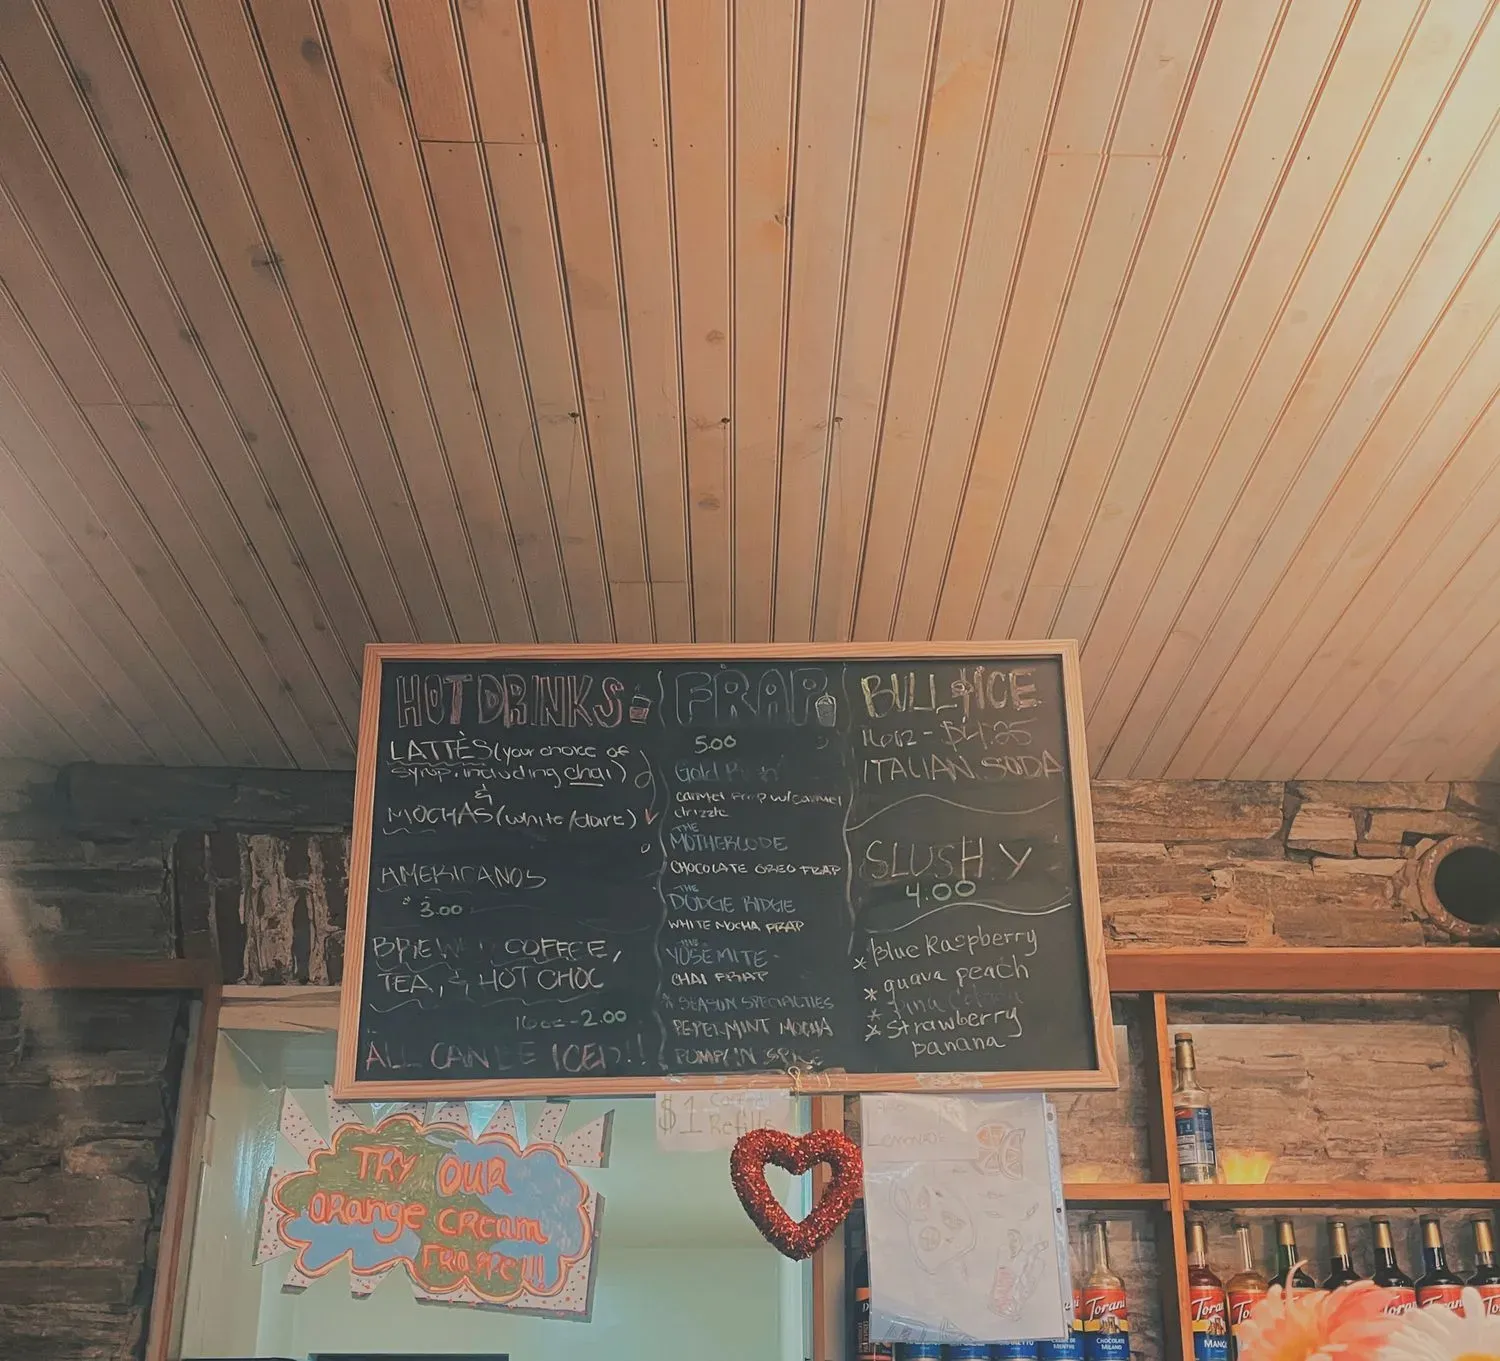 HOT DRINKS
LATTÈS (your choice of
syrup, including chai)
&
MOCHAS (white/dark)
AMERICANOS
3.00
BREW COFFEE,
TEA, & HOT CHOC
16oz - 2.00
ALL CAN BE ICED!!
FRAP
5.00
Gold
caramel Frap w/caramel
drizzle
THE
MOTHERLODE
CHOCOLATE OREO FRAP
THE
DODGE RIDGE
WHITE MOCHA FRAP
THE
YOSEMITE
CHAI FRAP
* SEASON SPECIALTIES
PEPERMINT MOCHA
PUMPKIN SPICE
16oz - $4.25
ITALIAN SODA
SLUSHY
4.00
* Blue Raspberry
* guava peach
* Pina Colada
* Strawberry
banana
$1 Coffee
Refills
TRY OUR
ORange CReam
FRappe!!!
Lemon
Torani
CHOCOLATE
MILANO
Torani
MANGO
Torani
Torani